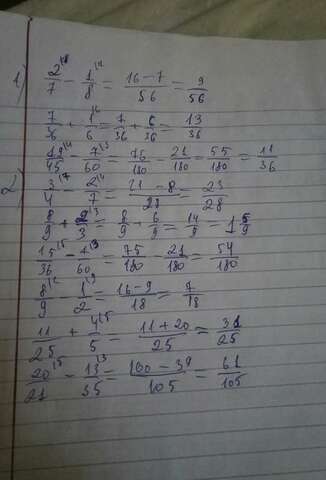 1) 2/7 - 1/8 = 16-7/56 = 9/56
7/36 + 1/6 = 7/36 + 6/36 = 13/36
19/45 - 7/60 = 76/180 - 21/180 = 55/180 = 11/36
2) 3/4 - 2/7 = 21-8/28 = 23/28
8/9 + 2/3 = 8/9 + 6/9 = 14/9 = 1 5/9
15/36 - 7/60 = 75/180 - 21/180 = 54/180
8/9 - 1/2 = 16-9/18 = 7/18
11/25 + 4/5 = 11+20/25 = 31/25
20/21 - 13/35 = 100-39/105 = 61/105